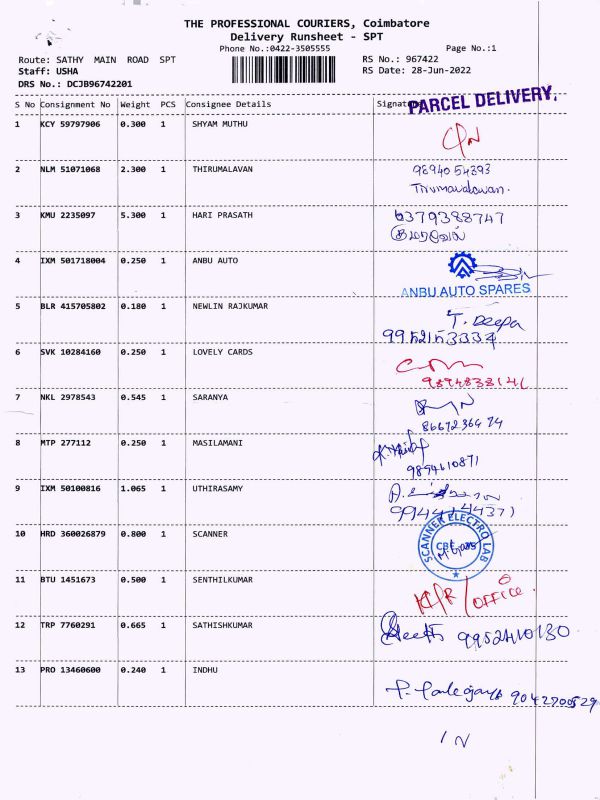 THE PROFESSIONAL COURIERS, Coimbatore
Delivery Runsheet - SPT
Phone No.:0422-3505555 Page No.:1
Route: SATHY MAIN ROAD SPT RS No.: 967422
Staff: USHA RS Date: 28-Jun-2022
DRS No.: DCJB96742201
S No Consignment No Weight PCS Consignee Details Signature PARCEL DELIVERY.
1 KCY 59797906 0.300 1 SHYAM MUTHU
2 NLM 51071068 2.300 1 THIRUMALAVAN 9894054393
Tirumavalavan.
3 KMU 2235097 5.300 1 HARI PRASATH 6379388747
4 IXM 501718004 0.250 1 ANBU AUTO
ANBU AUTO SPARES
5 BLR 415705802 0.180 1 NEWLIN RAJKUMAR T. Deepa
9952153334
6 SVK 10284160 0.250 1 LOVELY CARDS
9894838141
7 NKL 2978543 0.545 1 SARANYA
8667236474
8 MTP 277112 0.250 1 MASILAMANI
9894610871
9 IXM 50100816 1.065 1 UTHIRASAMY
10 HRD 360026879 0.800 1 SCANNER SCANNER ELECTRO LAB
11 BTU 1451673 0.500 1 SENTHILKUMAR
OFFICE.
12 TRP 7760291 0.665 1 SATHISHKUMAR 9952410130
13 PRO 13460600 0.240 1 INDHU
9042700529